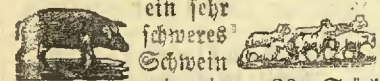 ein sehr
schweres
Schwein